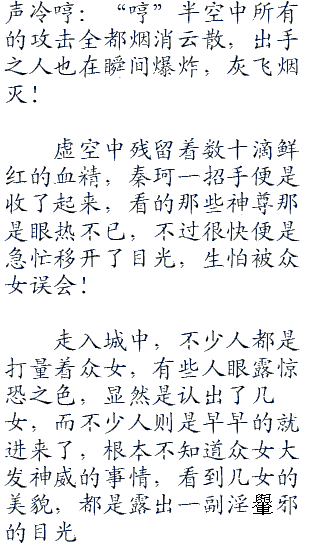 声冷哼：“哼”半空中所有
的攻击全都烟消云散，出手
之人也在瞬间爆炸，灰飞烟
灭！
虚空中残留着数十滴鲜
红的血精，秦珂一招手便是
收了起来，看的那些神尊那
是眼热不已，不过很快便是
急忙移开了目光，生怕被众
女误会！
走入城中，不少人都是
打量着众女，有些人眼露惊
恐之色，显然是认出了几
女，而不少人则是早早的就
进来了，根本不知道众女大
发神威的事情，看到几女的
美貌，都是露出一副淫邪
的目光